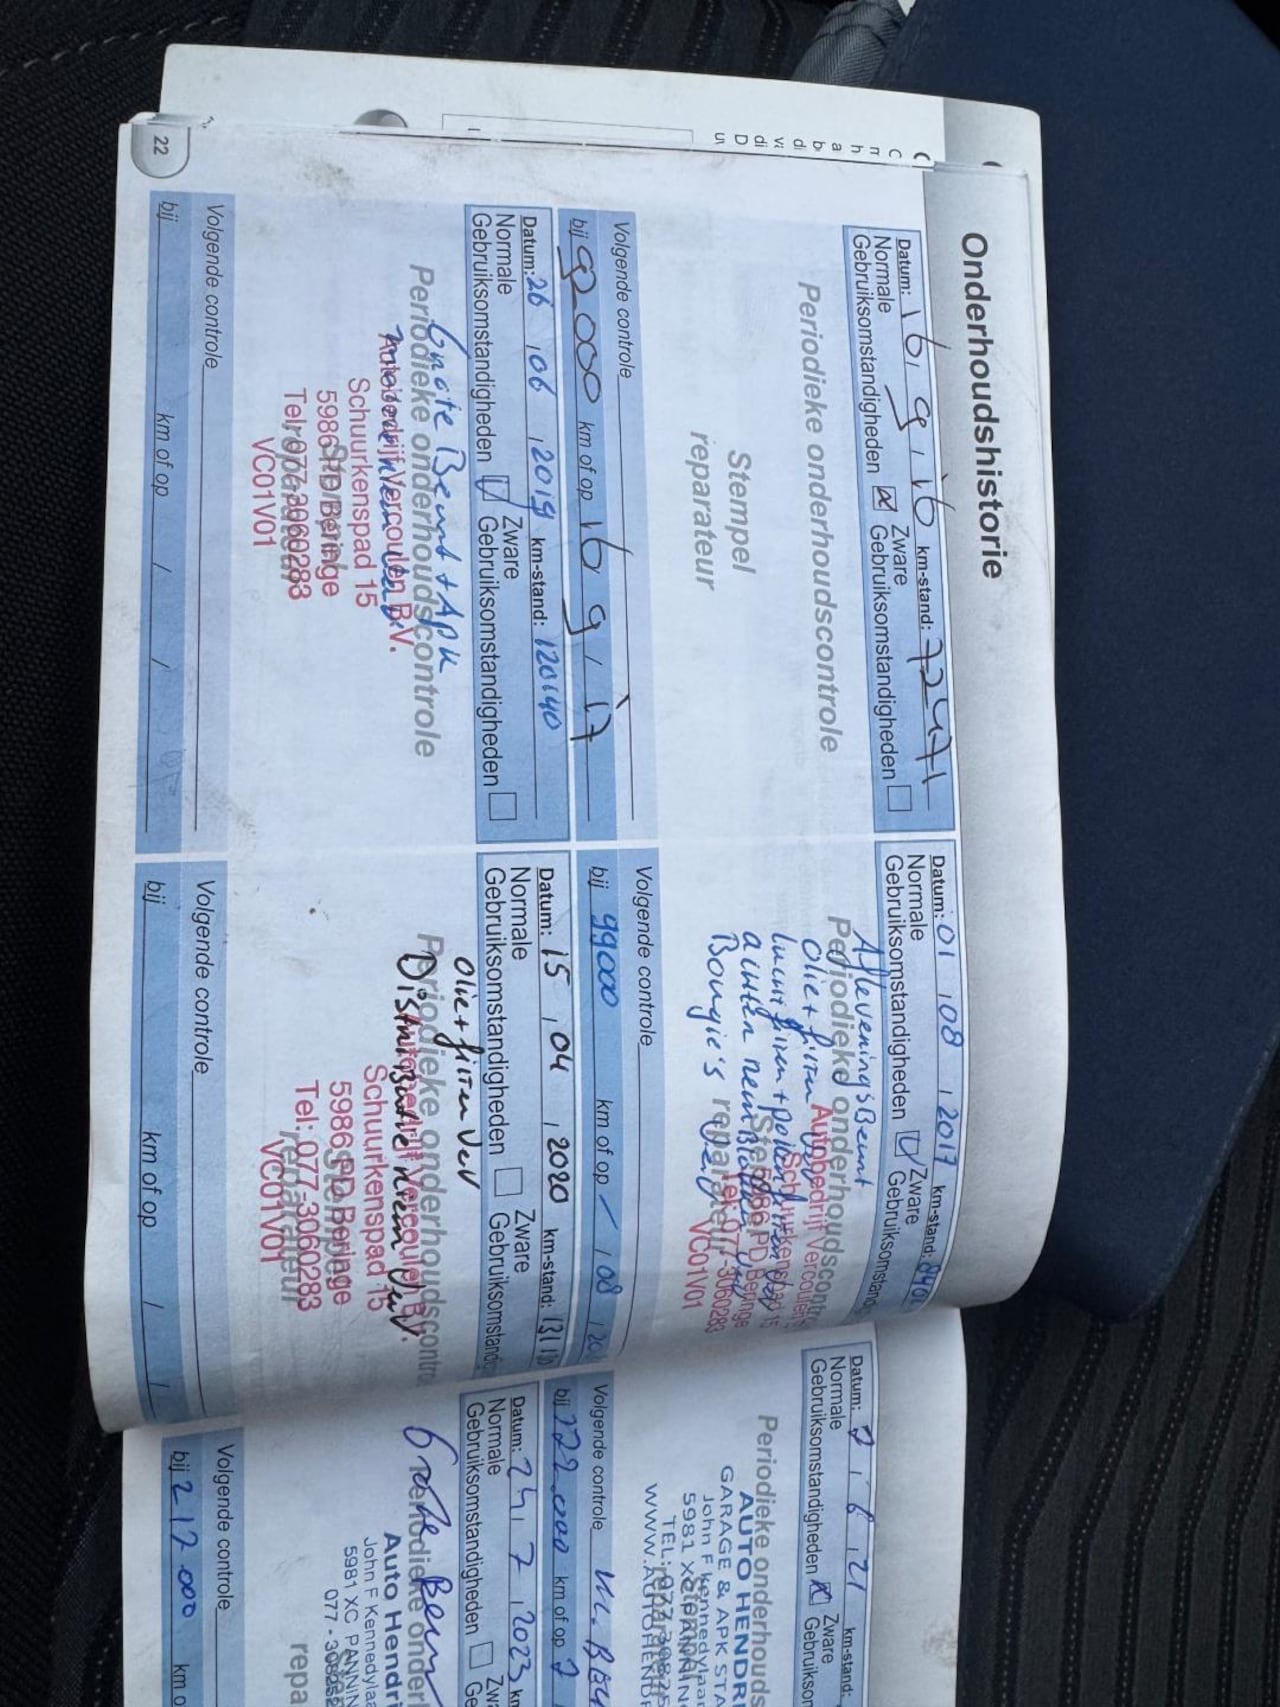 22
Onderhoudshistorie
Datum: 16, 9, 16 km-stand: 72471
Normale
Gebruiksomstandigheden
Zware
Gebruiksomstandigheden
Periodieke onderhoudscontrole
Stempel
reparateur
Volgende controle
bij 92000 km of op 16 9 / 17
Datum: 26 , 06 , 2019 km-stand: 120140
Normale
Gebruiksomstandigheden
Zware
Gebruiksomstandigheden
Periodieke onderhoudscontrole
Grote Beurt + APK
Autobedrijf Vercoulen B.V.
Schuurkenspad 15
5986 PD Beringe
Tel: 077-3060283
VC01V01
Volgende controle
bij km of op / /
Datum: 01 , 08 , 2017 km-stand: 840
Normale
Gebruiksomstandigheden
Zware
Gebruiksomstand
Periodieke onderhoudscontr
Afleverings Beurt
Olie + filter
Bougie's
Autobedrijf Vercoulen
Schuurkenspad 15
5986 PD Beringe
Tel: 077-3060283
VC01V01
Volgende controle
bij 99000 km of op / 08 / 20
Datum: 15 , 04 , 2020 km-stand: 1311
Normale
Gebruiksomstandigheden
Zware
Gebruiksomstand
Periodieke onderhoudscontro
Olie + filter Ver
Distributie riem Ver
Autobedrijf Vercoulen B.V.
Schuurkenspad 15
5986 PD Beringe
Tel: 077-3060283
VC01V01
Volgende controle
bij km of op / /
Datum: 2 , 6 , 21 km-stand:
Normale
Gebruiksomstandigheden
Zware
Gebruikson
Periodieke onderhouds
AUTO HENDRI
GARAGE & APK STA
John F Kennedylaa
5981 X
TEL.: 077 30825
WWW.AUTOHENDR
Volgende controle
bij 122.000 km of op
Datum: 24 , 7 , 2023 km
Normale
Gebruiksomstandigheden
Zwa
Ge
Periodieke onderh
Grote Beurt
Auto Hendri
John F Kennedylaa
5981 XC PANNIN
077 - 30825
repa
Volgende controle
bij 217.000 km o